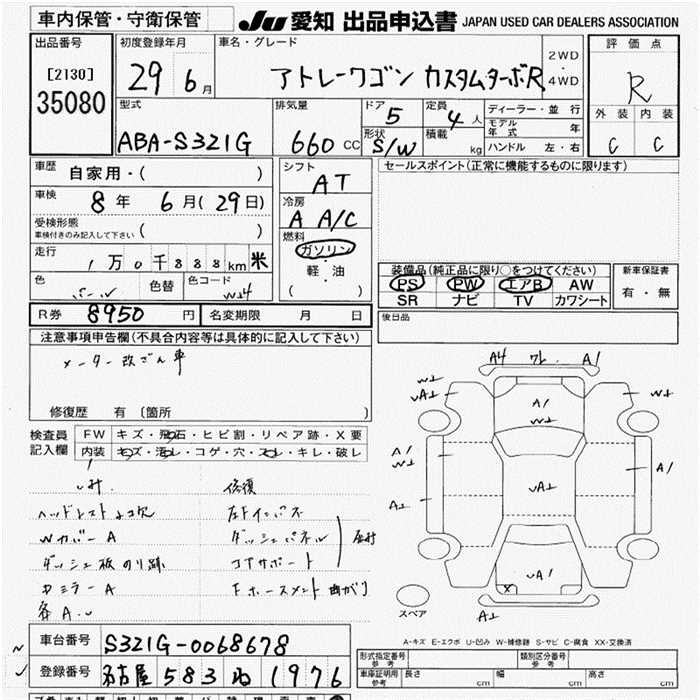 車内保管・守衛保管
JU 愛知 出品申込書 JAPAN USED CAR DEALERS ASSOCIATION
出品番号
[2130]
35080
初度登録年月
29 6月
車名・グレード
アトレーワゴン カスタムターボR
2WD
・
4WD
評価点
R
外装 内装
C C
型式
ABA-S321G
排気量
660 CC
ドア
5
定員
4人
形状
S/W
積載
kg
ディーラー・並行
モデル年式 年
ハンドル 左・右
車歴
自家用・( )
車検
8年 6月(29日)
受検形態
車検付きのみ記入して下さい ( )
走行
1万0千888km 米
色
パール
色替
色コード
W24
シフト
AT
冷房
A A/C
燃料
ガソリン
・
軽・油
( )
セールスポイント(正常に機能するものに限ります)
装備品(純正品に限り○をつけてください)
PS PW エアB AW
SR ナビ TV カワシート
新車保証書
有・無
R券 8950円
名変期限 月 日
後日品
注意事項申告欄(不具合内容等は具体的に記入して下さい)
メーター改ざん車
修復歴 有 [箇所 ]
検査員
記入欄
FW キズ・飛石・ヒビ割・リペア跡・X要
内装 キズ・汚レ・コゲ・穴・スレ・キレ・破レ
ヘッドレスト2欠
Wカバー A
ダッシュ板のり跡
ドミラーA
各A.U
修復
左Fインパネ
ダッシュパネル
コアサポート
Fホースメント曲がり
A4 ワレ A1
W2
UA2
A1
W2
W2
A1
W2
UA2
A1
A2
UA1
X
A2
スペア
A-キズ E-エクボ U-凹み W-補修跡 S-サビ C-腐食 XX-交換済
車台番号
S321G-0068678
登録番号
名古屋 583 ね 1976
形式指定番号
参考
類別区分番号
参考
車庫証明用
参考
長さ cm
幅 cm
高さ cm